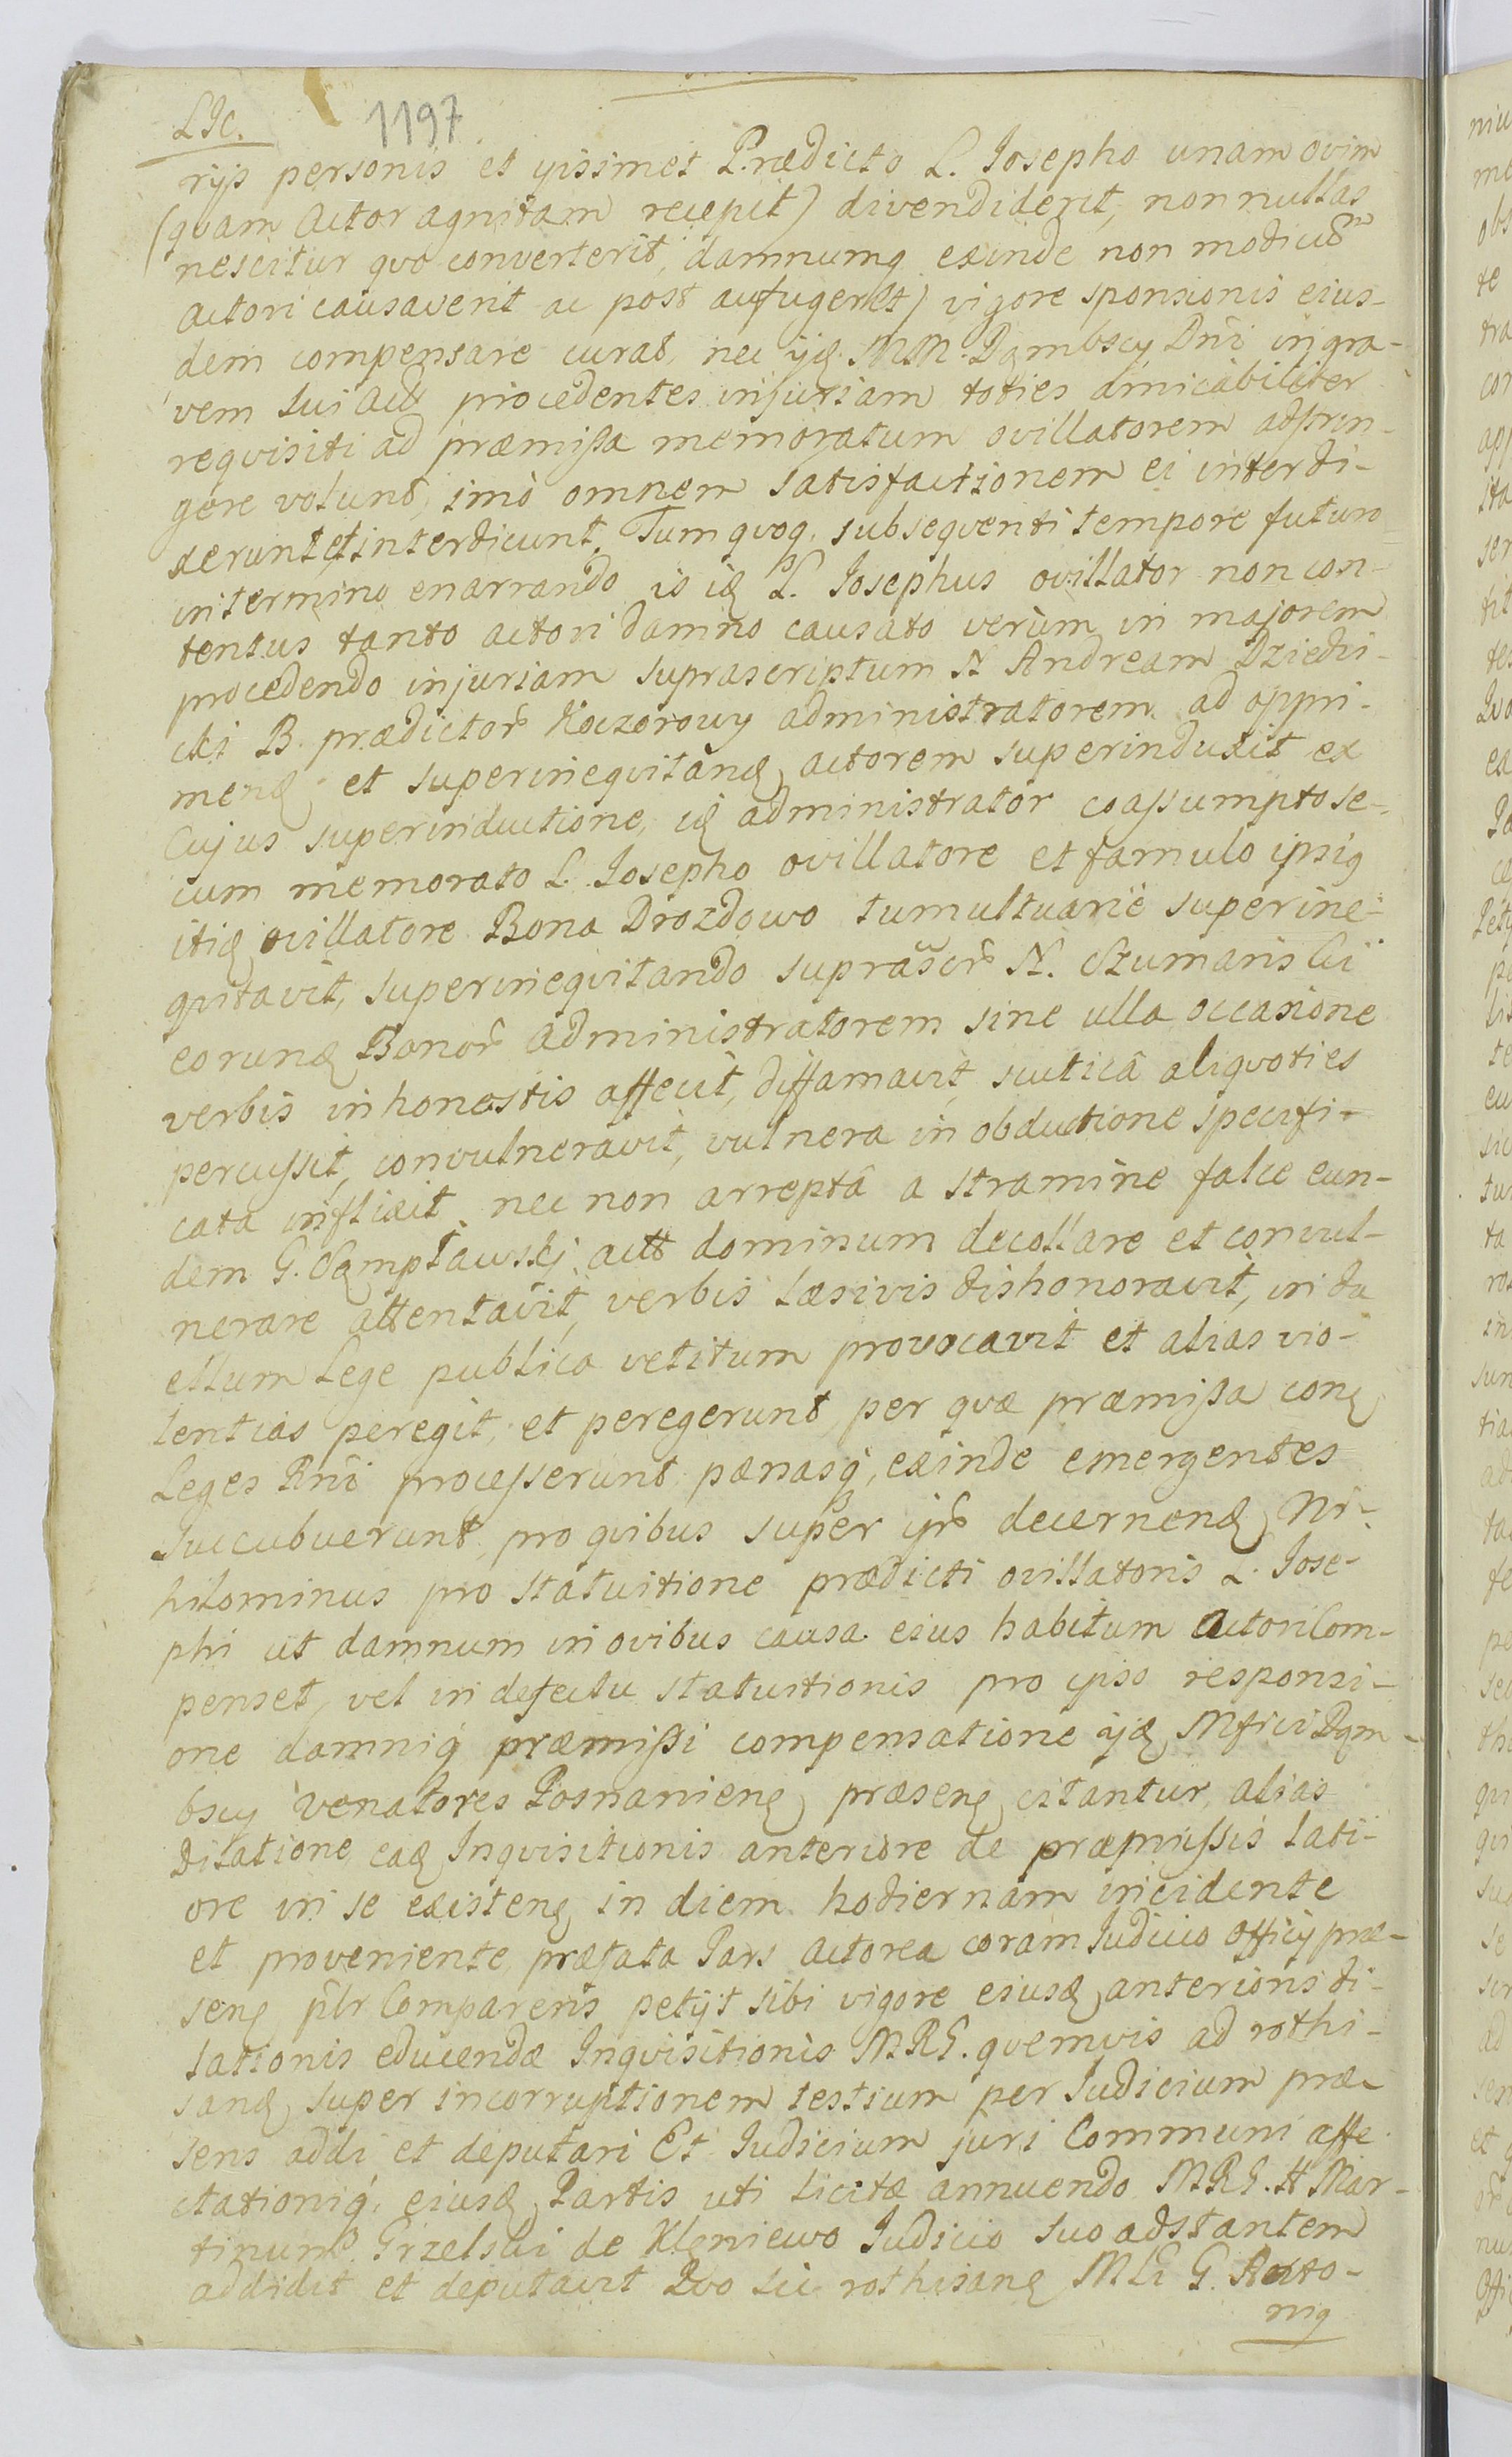 LIc.
1197
rijs personis et ijssimet Prædicto L. Josepho unam ovim
(quam Actor agnitam recepit) divendiderit, nonnullas
nescitur quo converterit, damnumq exinde non modicum
Actori causaverit ac post aufugerit) vigore sponsionis eius-
dem compensare curat, nec ijd MM. Dąmbscy Dni in gra-
vem sui Act procedentes injuriam toties amicabiliter
requisiti ad præmissa memoratum ovillatorem adstrin-
gere volunt, imò omnem satisfactionem ei interdi-
xerunt et interdicunt. Tum quoq. subsequenti tempore futuro
in termino enarrando is id L. Josephus ovillator non con-
tentus tanto actori damno causato verùm in majorem
procedendo injuriam suprascriptum N Andream Dziedzi-
cki B. prædictor Koczorowy administratorem ad oppri-
mend et superinequitand actorem superinduxit ex
Cujus superinductione, id administrator coassumpto se-
cum memorato L. Josepho ovillatore et famulo ipsiq
itid ovillatore Bona Drozdowo tumultuariè superine-
quitavit, superinequitando suprascr N. Szumanscii
eorund Bonor Administratorem sine ulla occasione
verbis inhonestis affecit, diffamavit, scuticâ aliquoties
percussit, convulneravit, vulnera in obductione specifi-
cata inflixit nec non arreptâ a stramine falce eun-
dem G. act dominum decollare et convul-
nerare attentavit, verbis læsivis dishonoravit, in du
ellum Lege publica vetitum provocavit et alias vio-
lentias peregit, et peregerunt, per quæ præmissa con
Leges Rni processerunt pænasq, exinde emergentes
succubuerunt, pro quibus super ijs decernend Ni-
hilominus pro statuitione prædicti ovillatoris L. Jose-
phi ut damnum in ovibus causa eius habitum actori Com-
penset, vel in defectu statuitionis pro ipso responsi-
one damniq præmissi compensatione ijd Mfici Dąm-
bscy venatores Posnaniens præsens citantur, alias
Dilatione ead Inquisitionis anteriore de præmissis lati-
ore in se existens in diem hodiernam incidente
et proveniente, præfata Pars actorea coram Judicio officij præ-
sens plr Comparens petijt sibi vigore eiusd anterioris di-
lationis educendæ Inquisitionis MRG. quemvis ad rothi-
sand super incorruptionem testium per Judicium præ-
sens addi et deputari Et Judicium juri Communi affe
ctationiq. eiusd Partis uti licitæ annuendo MRG. H Mar-
tinum Grzelski de Kleniewo Judicio suo adstantem
addidit et deputavit Quo sic rothisand MG G. Anto-
niq